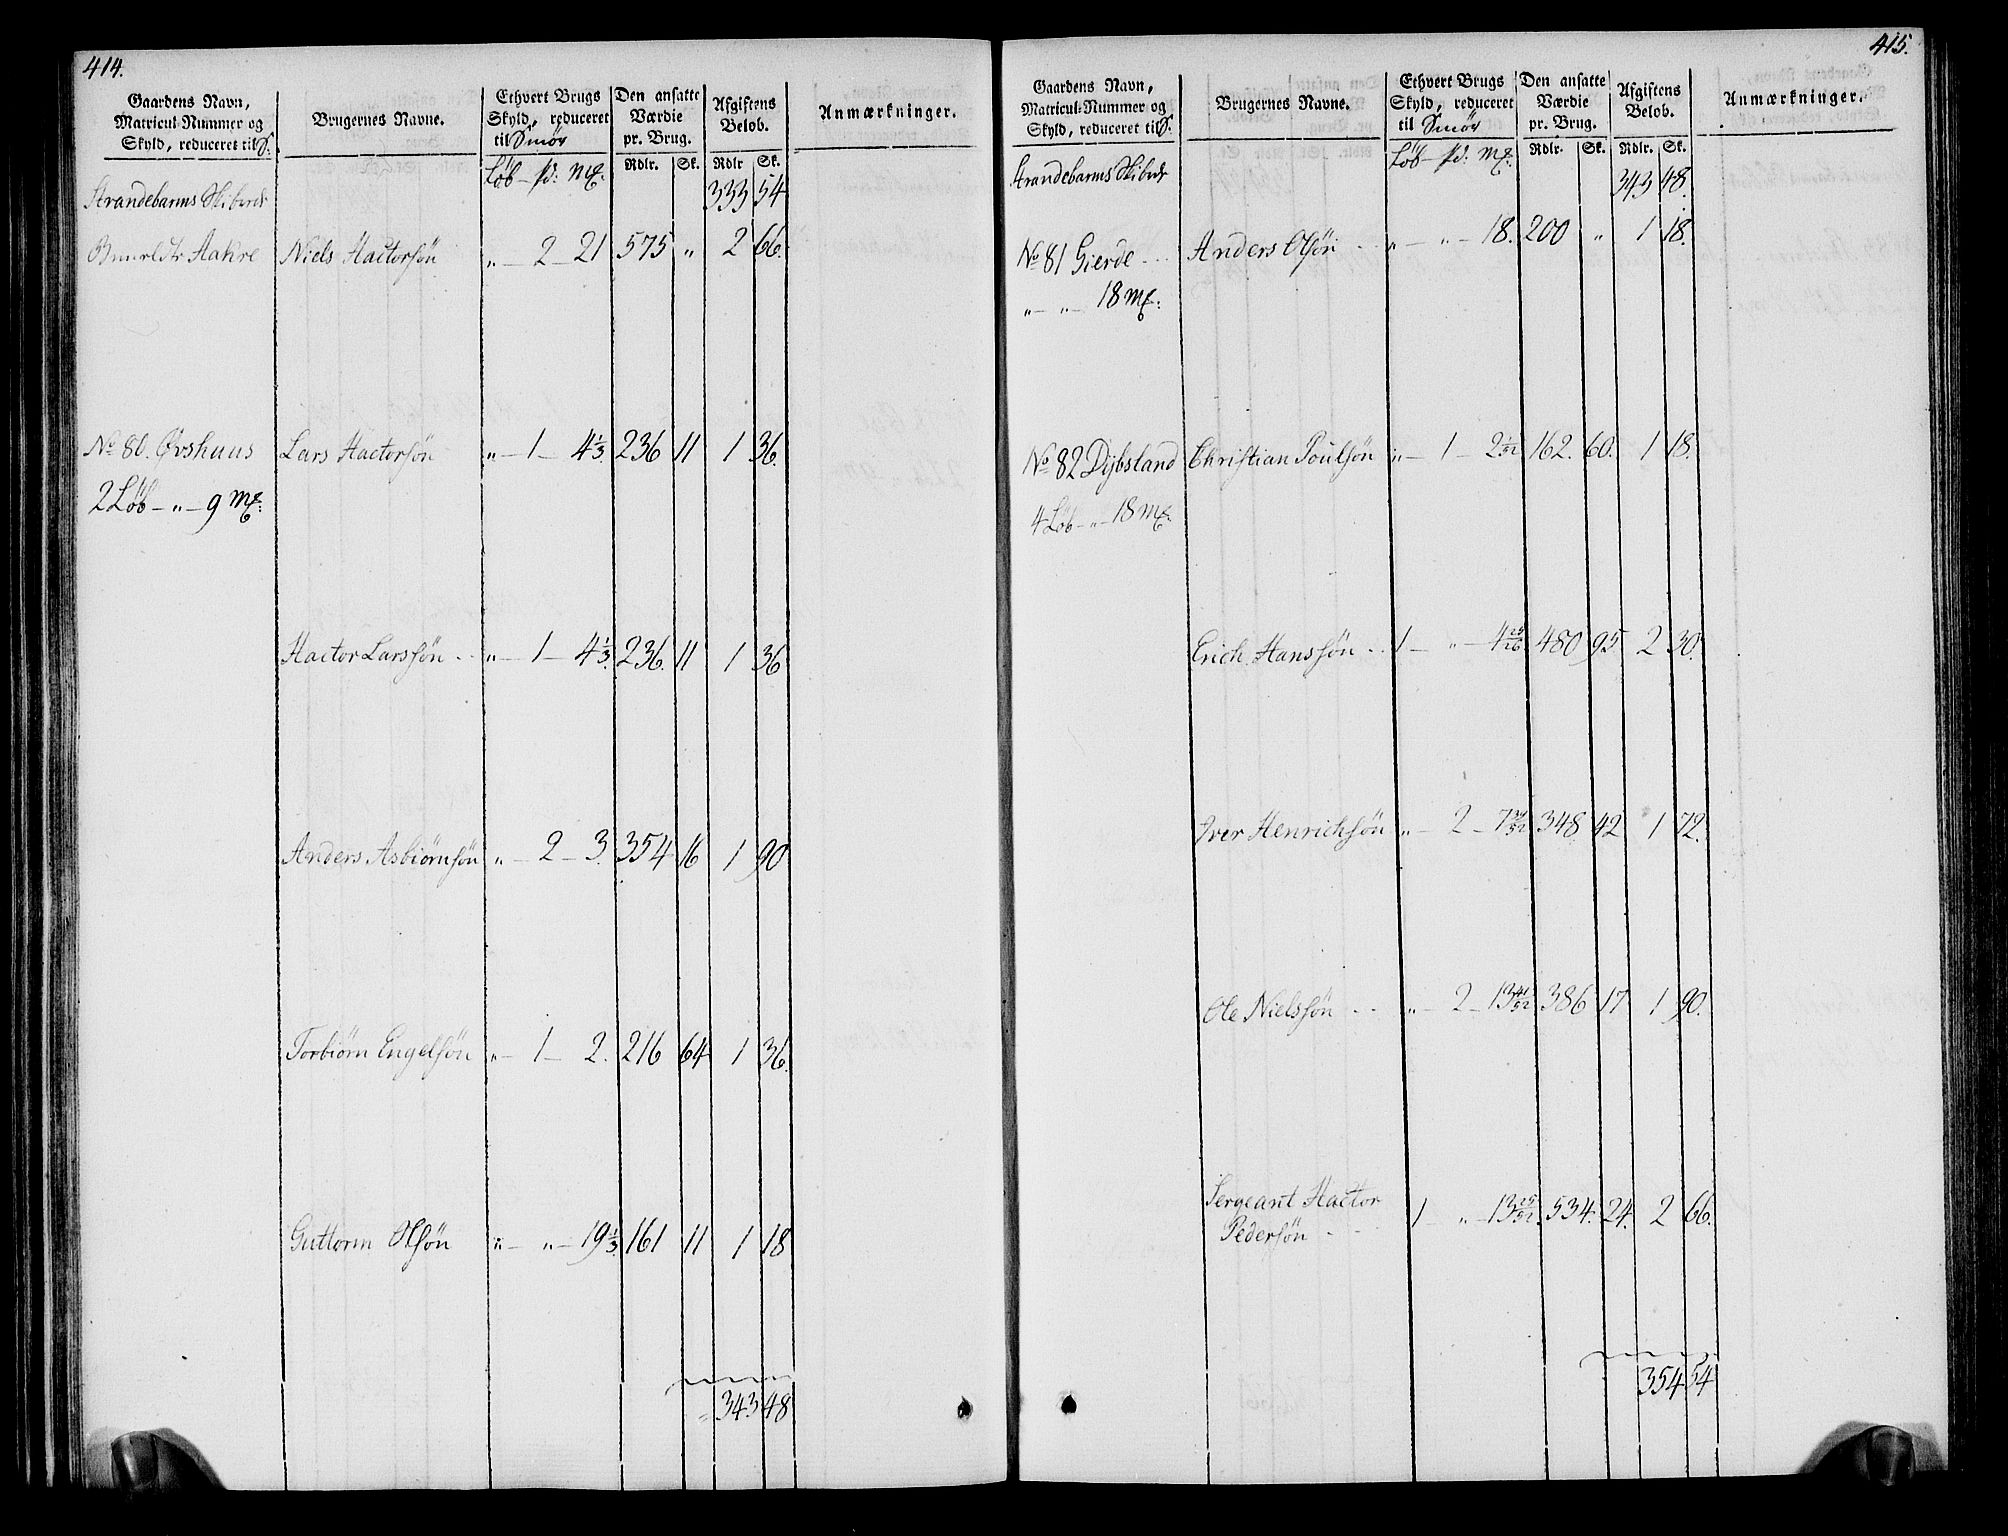 414.
Gaardens Navn, Matricul-Nummer og Skyld, reduceret til S: | Brugernes Navne. | Ethvert Brugs Skyld, reduceret til Smör | Den ansatte Værdie pr. Brug. | Afgiftens Beløb. | Anmærkninger.
Löb – pd: mk: | Rdlr. | Sk. | Rdlr | Sk.
Strandebarms Skibrede 333 54
Aakre Niels Hactorsøn „ – 2 – 21 575 „ 2 66.
No 80. Øvshuus Lars Hactorsøn „ – 1 – 4 1/3 236 11 1 36.
2 Löb – „ – 9 mk:
Hactor Larssøn „ – 1 – 4 1/3. 236. 11 1 36
Anders Asbiørnsøn „ – 2 – 3. 354 16 1 90
Torbiørn Engelsøn „ – 1 – 2. 216 64 1 36.
Guttorm Olsøn „ – „ – 19 1/3. 161 11 1 18
343 48
415.
Gaardens Navn, Matricul-Nummer og Skyld, reduceret til S: | Brugernes Navne. | Ethvert Brugs Skyld, reduceret til Smör | Den ansatte Værdie pr. Brug. | Afgiftens Beløb. | Anmærkninger.
Löb – pd: mk: | Rdlr. | Sk. | Rdlr. | Sk.
Strandebarms Skibrede 343 48.
No 81 Gierde Anders Olsøn „ – „ – 18. 200 „ 1 18.
„ – „ – 18 mk:
No 82 Dybsland Christian Poulsøn „ – 1 – 2 1/52 162. 60. 1 18.
4 Löb – „ – 18 mk:
Erich Hanssøn 1 – „ – 4 25/26 480 95 2 30.
Iver Henrichsøn „ – 2 – 7 348 42 1 72.
Ole Nielssøn „ – 2 – 13 41/52 386 17 1 90.
Sergeant Hactor
Pedersøn 1 – „ – 13 25/52 534. 24. 2 66.
354 54